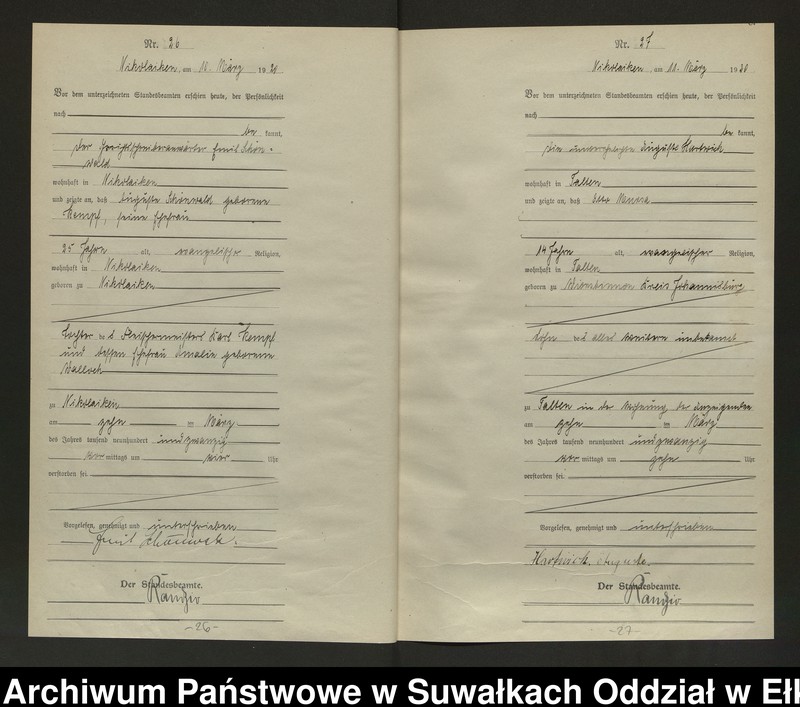 Nr. 26
Nikolaiken, am 10. März 1920
Vor dem unterzeichneten Standesbeamten erschien heute, der Persönlichkeit
nach
be kannt,
der Emil Schön-
wald
wohnhaft in Nikolaiken
und zeigte an, daß Auguste Schönwald geborene
Kempf, seine Ehefrau
25 Jahre alt, evangelischer Religion,
wohnhaft in Nikolaiken
geboren zu Nikolaiken
Tochter des Fleischermeisters Karl Kempf
und dessen Ehefrau Amalie geborene
zu Nikolaiken
am zehn ten März
des Jahres tausend neunhundert undzwanzig
vor mittags um vier Uhr
verstorben sei.
Vorgelesen, genehmigt und unterschrieben
Emil
Der Standesbeamte.
-26-
Nr. 27
Nikolaiken, am 11. März 1920
Vor dem unterzeichneten Standesbeamten erschien heute, der Persönlichkeit
nach
be kannt,
die Auguste Hartwich
wohnhaft in Talten
und zeigte an, daß Otto
14 Jahre alt, evangelischer Religion,
wohnhaft in Talten
geboren zu Kreis Johannisburg
Sohn alles Weitere unbekannt
zu Talten in der Wohnung der Anzeigenden
am zehn ten März
des Jahres tausend neunhundert undzwanzig
vor mittags um zehn Uhr
verstorben sei.
Vorgelesen, genehmigt und unterschrieben
Hartwich. Auguste.
Der Standesbeamte.
-27-
Archiwum Państwowe w Suwałkach Oddział w Ełk